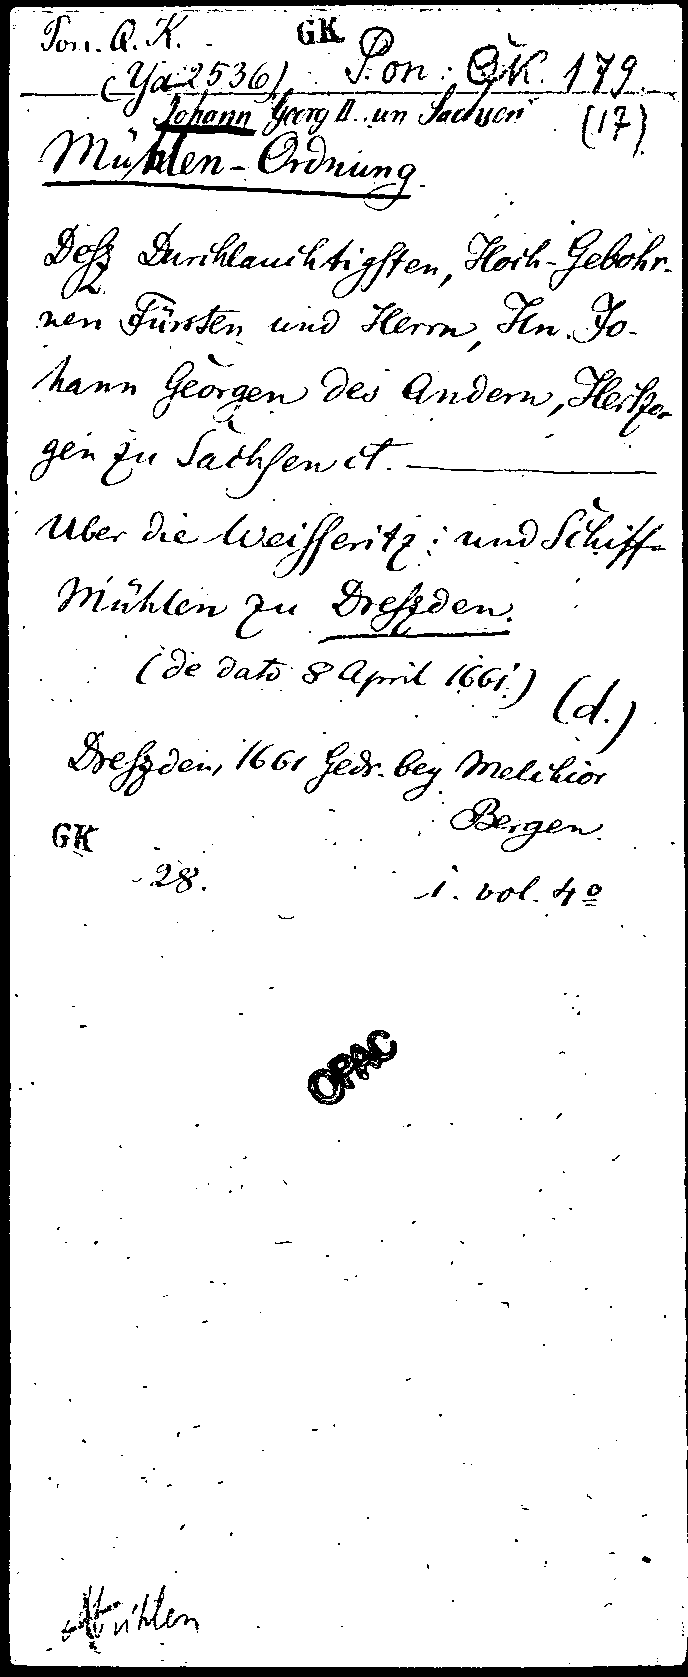 Pon. Q. K.
GK
(Ya 2536) Pon: QK. 179.
Johann Georg II. un Sachsen (17)
Mühlen-Ordnung.
Deß Durchlauchtigsten, Hoch-Gebohr-
nen Fürsten und Herrn, Hn. Jo-
hann Georgen des Andern, Hertzo-
gen zu Sachsen ct.
Uber die Weisseritz: und Schiff-
Mühlen zu Dreßden.
(de dato 8 April 1661.) (d.)
Dreßden, 1661 Gedr. bey Melchior
Bergen.
GK
28. 1. vol. 4º
OPAC
Mühlen